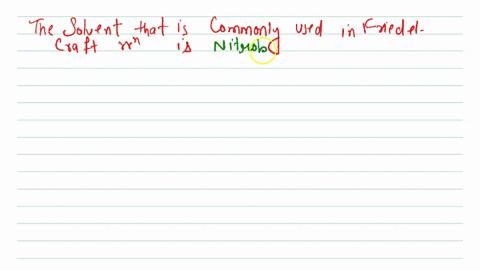 The Solvent that is Commonly used in Friedel-
Craft rxn is Nitrob